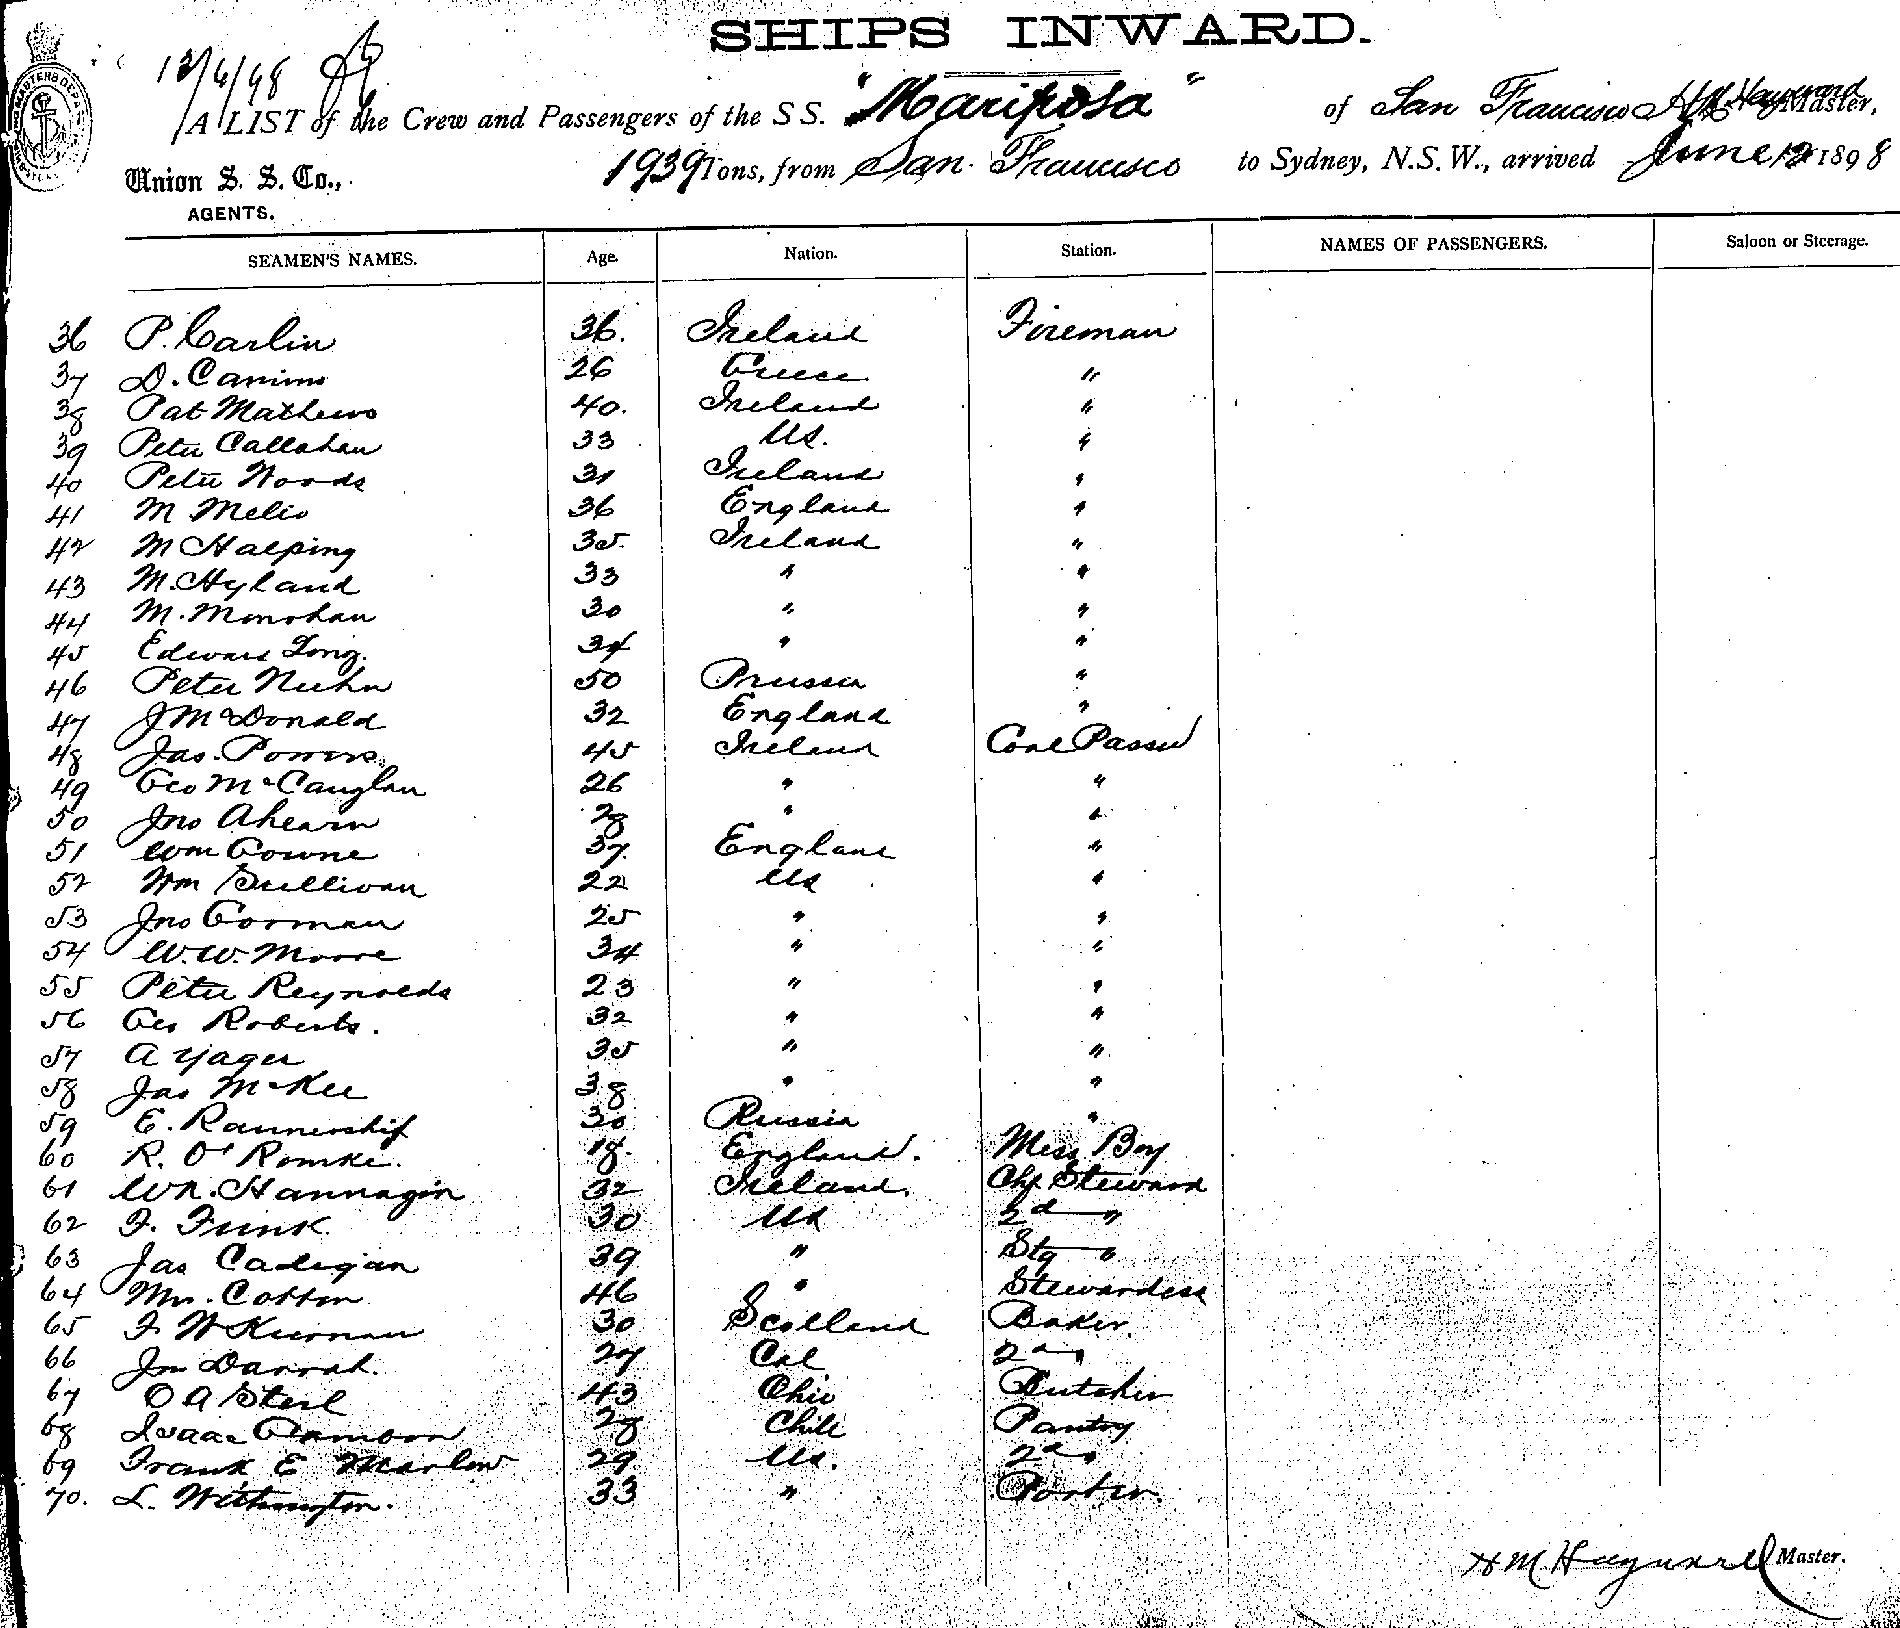 SHIPS INWARD.
13/6/98
A LIST of the Crew and Passengers of the S S. "Mariposa" of San Francisco H M Hayward Master,
Union S. S. Co., 1939 Tons, from San Francisco to Sydney, N.S.W., arrived June 12 1898
AGENTS.
SEAMEN'S NAMES. Age. Nation. Station. NAMES OF PASSENGERS. Saloon or Steerage.
36 P. Carlin 36. Ireland Fireman
37 D. Canims 26 Greece "
38 Pat Mathews 40. Ireland "
39 Peter Callahan 33 US. "
40 Peter Woods 31 Ireland "
41 M Melio 36 England "
42 M Halping 35. Ireland "
43 M. Hyland 33 " "
44 M. Monohan 30 " "
45 Edward Long. 34 " "
46 Peter Niehn 50 Prussia "
47 J McDonald 32 England "
48 Jas. Powers 45 Ireland Coal Passer
49 Geo McCauglan 26 " "
50 Jno Ahearn 28 " "
51 Wm Cowne 37. England "
52 Wm Sullivan 22 US "
53 Jno Gorman 25 " "
54 W. W. Moore 34 " "
55 Peter Reynolds 23 " "
56 Geo Roberts. 32 " "
57 A Yager 35 " "
58 Jas McKee 38 " "
59 E. 30 Russia "
60 R. O' Romke. 18. England. Mess Boy
61 Wm. Hannagin 32 Ireland. Chf Steward
62 F. Funk 30 US 2d "
63 Jas Cadigan 39 " Stg "
64 Mrs. Cotton 46 " Stewardess
65 F W Kiernan 30 Scotland Baker.
66 Jno Darrah. 27 Cal 2d "
67 O A Sterl 43 Ohio Butcher
68 Isaac 28 Chile Pantry
69 Frank E Marlow 29 US. 2d "
70. L. Withington. 33 " Porter.
H M. Hayward Master.